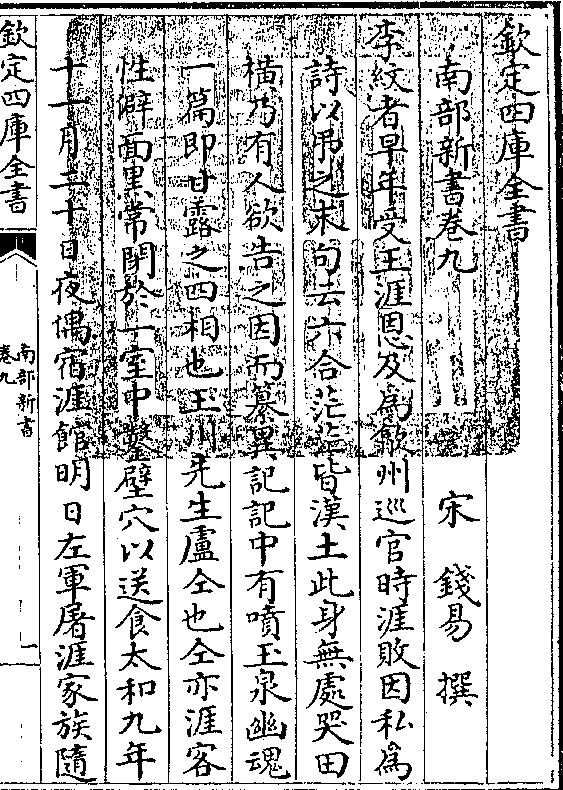 欽定四庫全書
南部新書卷九
宋 錢易 撰
李紋者早年受王涯恩及為歙州巡官時涯敗因私為
詩以弔之末句云六合茫茫皆漢土此身無處哭田
橫乃有人欲告之因而纂異記記中有噴玉泉幽魂
一篇即甘露之四相也玉川先生盧仝也仝亦涯客
性僻面黑常閉於一室中鑿壁穴以送食太和九年
十一月二十日夜偶宿涯館明日左軍屠涯家族隨
欽定四庫全書
南部新書
卷九
一